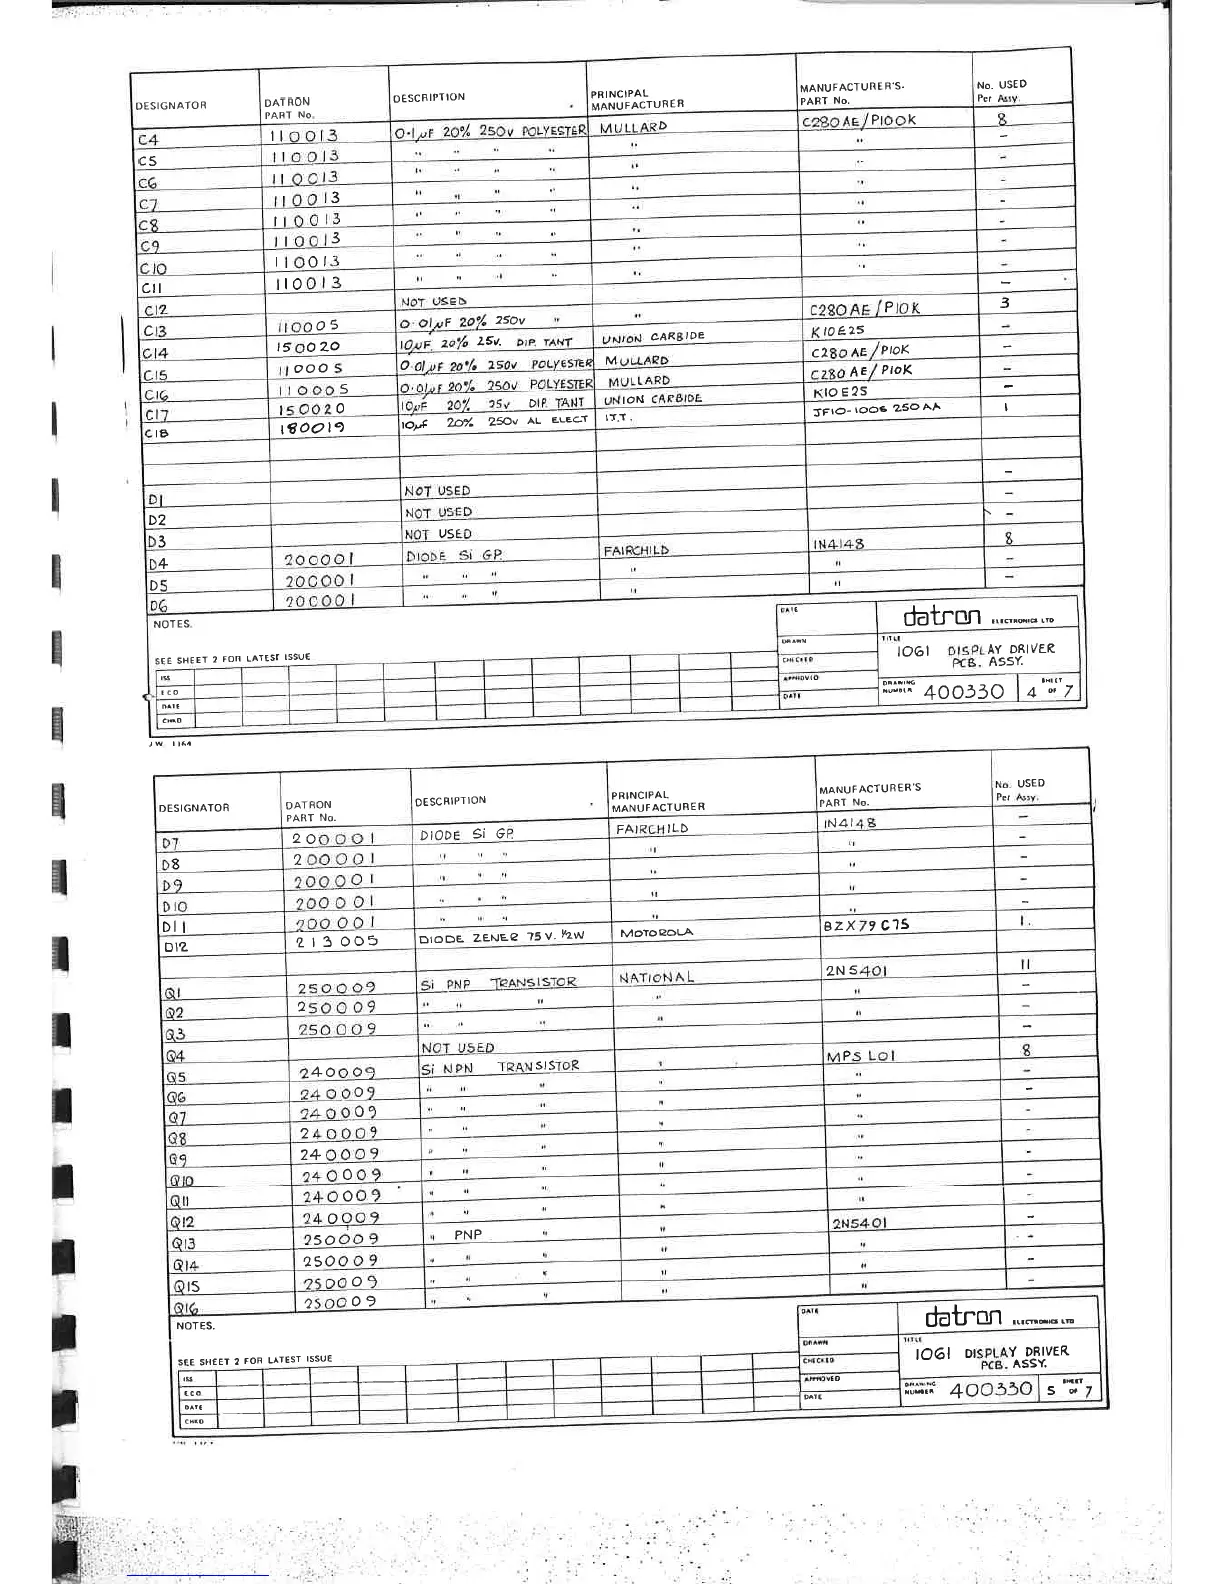 DESIGNATOR DATRON PART No. DESCRIPTION PRINCIPAL MANUFACTURER MANUFACTURER'S. PART No. No. USED Per Assy.
C4 110013 0·1µF 20% 250v POLYESTER MULLARD C280 AE/P100K 8
C5 110013 " " " " " " -
C6 110013 " " " " " " -
C7 110013 " " " " " " -
C8 110013 " " " " " " -
C9 110013 " " " " " " -
C10 110013 " " " " " " -
C11 110013 " " " " " " -
C12 NOT USED -
C13 110005 0·01µF 20% 250v " " C280AE/P10K 3
C14 150020 10µF. 20% 25v. DIP. TANT UNION CARBIDE K10E25 -
C15 110005 0·01µF 20% 250v POLYESTER MULLARD C280 AE/P10K -
C16 110005 0·01µF 20% 250v POLYESTER MULLARD C280 AE/P10K -
C17 150020 10µF 20% 25v DIP. TANT UNION CARBIDE K10E25 -
C18 180019 10µF 20% 250v AL ELECT I.T.T. JF10-1006 250AA 1
D1 NOT USED -
D2 NOT USED -
D3 NOT USED -
D4 200001 DIODE Si GP. FAIRCHILD IN4148 8
D5 200001 " " " " " -
D6 200001 " " " " " -
NOTES.
SEE SHEET 2 FOR LATEST ISSUE
ISS
ECO
DATE
CHKD
DATE
DRAWN
CHECKED
APPROVED
DATE
datron ELECTRONICS LTD
TITLE
1061 DISPLAY DRIVER
PCB. ASSY.
DRAWING NUMBER 400330 SHEET 4 OF 7
JW 1164
DESIGNATOR DATRON PART No. DESCRIPTION PRINCIPAL MANUFACTURER MANUFACTURER'S PART No. No. USED Per Assy.
D7 200001 DIODE Si GP. FAIRCHILD IN4148 -
D8 200001 " " " " " -
D9 200001 " " " " " -
D10 200001 " " " " " -
D11 200001 " " " " " -
D12 213005 DIODE ZENER 75V. ½W MOTOROLA BZX79 C75 1.
Q1 250009 Si PNP TRANSISTOR NATIONAL 2N5401 11
Q2 250009 " " " " " -
Q3 250009 " " " " " -
Q4 NOT USED -
Q5 240009 Si NPN TRANSISTOR " MPS LO1 8
Q6 240009 " " " " " -
Q7 240009 " " " " " -
Q8 240009 " " " " " -
Q9 240009 " " " " " -
Q10 240009 " " " " " -
Q11 240009 " " " " " -
Q12 240009 " " " " " -
Q13 250009 " PNP " " 2N5401 -
Q14 250009 " " " " " -
Q15 250009 " " " " " -
Q16 250009 " " " " " -
NOTES.
SEE SHEET 2 FOR LATEST ISSUE
ISS
ECO
DATE
CHKD
DATE
DRAWN
CHECKED
APPROVED
DATE
datron ELECTRONICS LTD
TITLE
1061 DISPLAY DRIVER
PCB. ASSY.
DRAWING NUMBER 400330 SHEET 5 OF 7